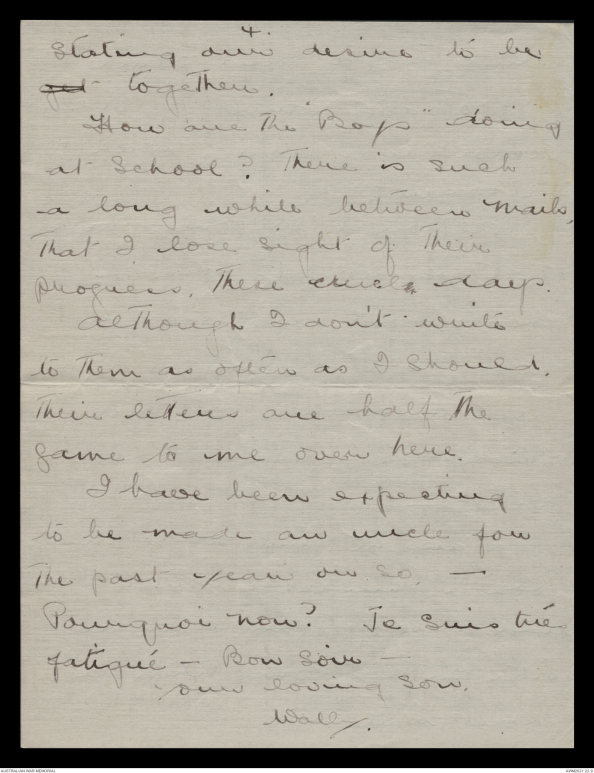 4.
Stating our desire to be
get together.
How are the "Boys" doing
at School? There is such
a long while between mails,
that I lose sight of their
progress, these cruel days.
Although I don't write
to them as often as I should,
their letters are half the
game to me over here.
I have been expecting
to be made an uncle for
the past year or so, —
Pourquoi non? Je suis trés
fatigué — Bon Soir —
your loving son,
Wally.
AUSTRALIAN WAR MEMORIAL